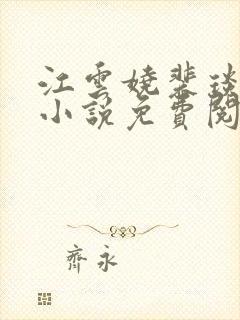 江雲嬈裴琰
小說免費閱
齊永